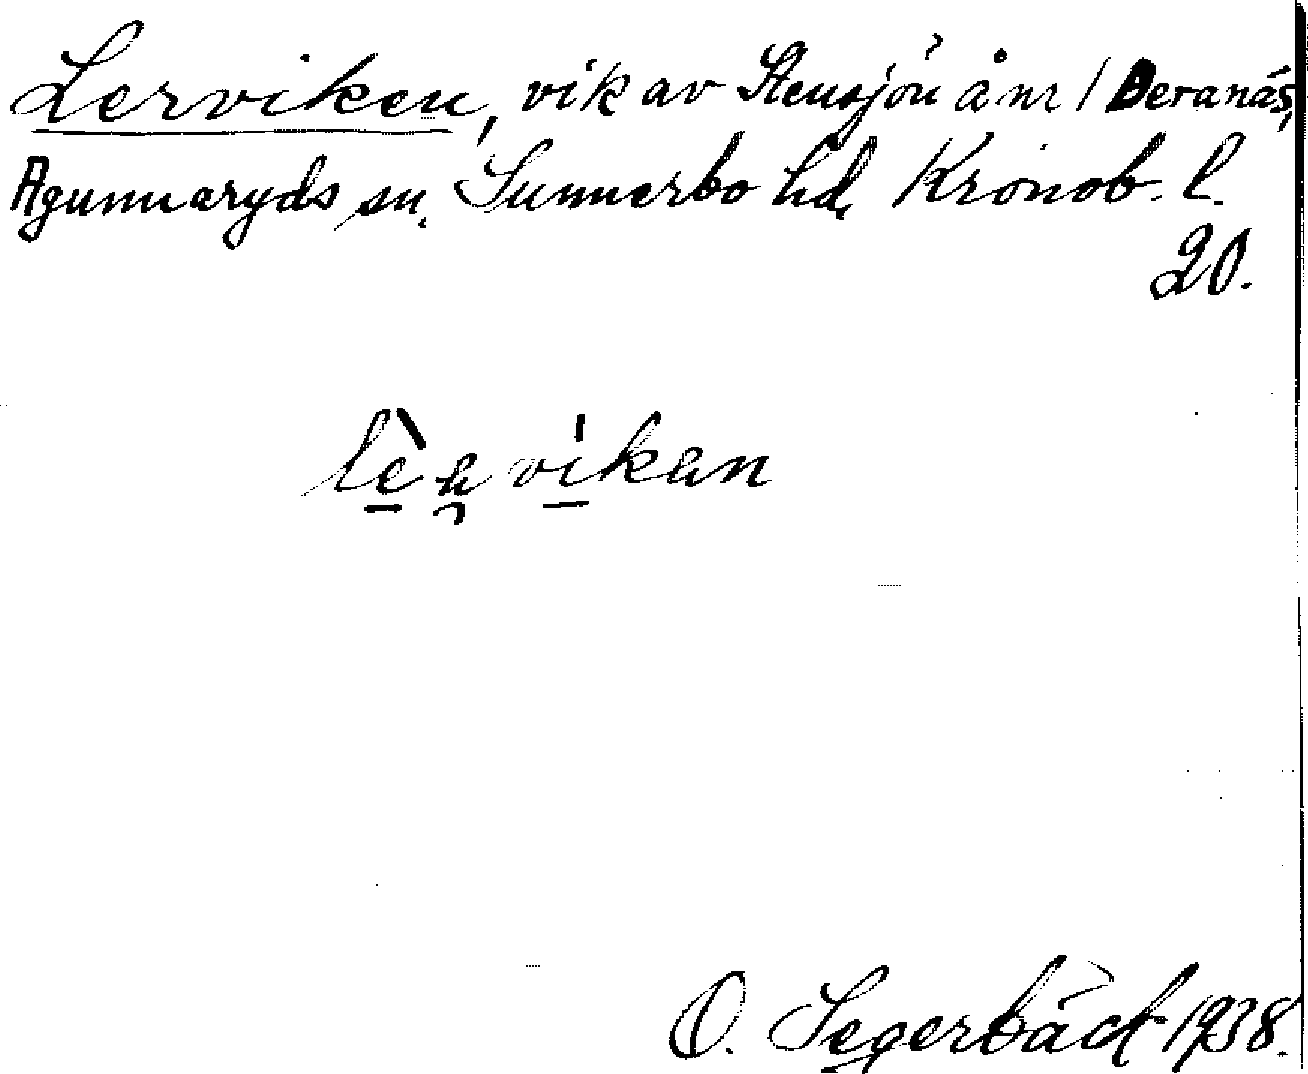 Lerviken, vik av Stensjön å nr 1 Deranäs,
Agunnaryds sn. Sunnerbo hd, Kronob. l.
20.
O. Segerbäck 1938.